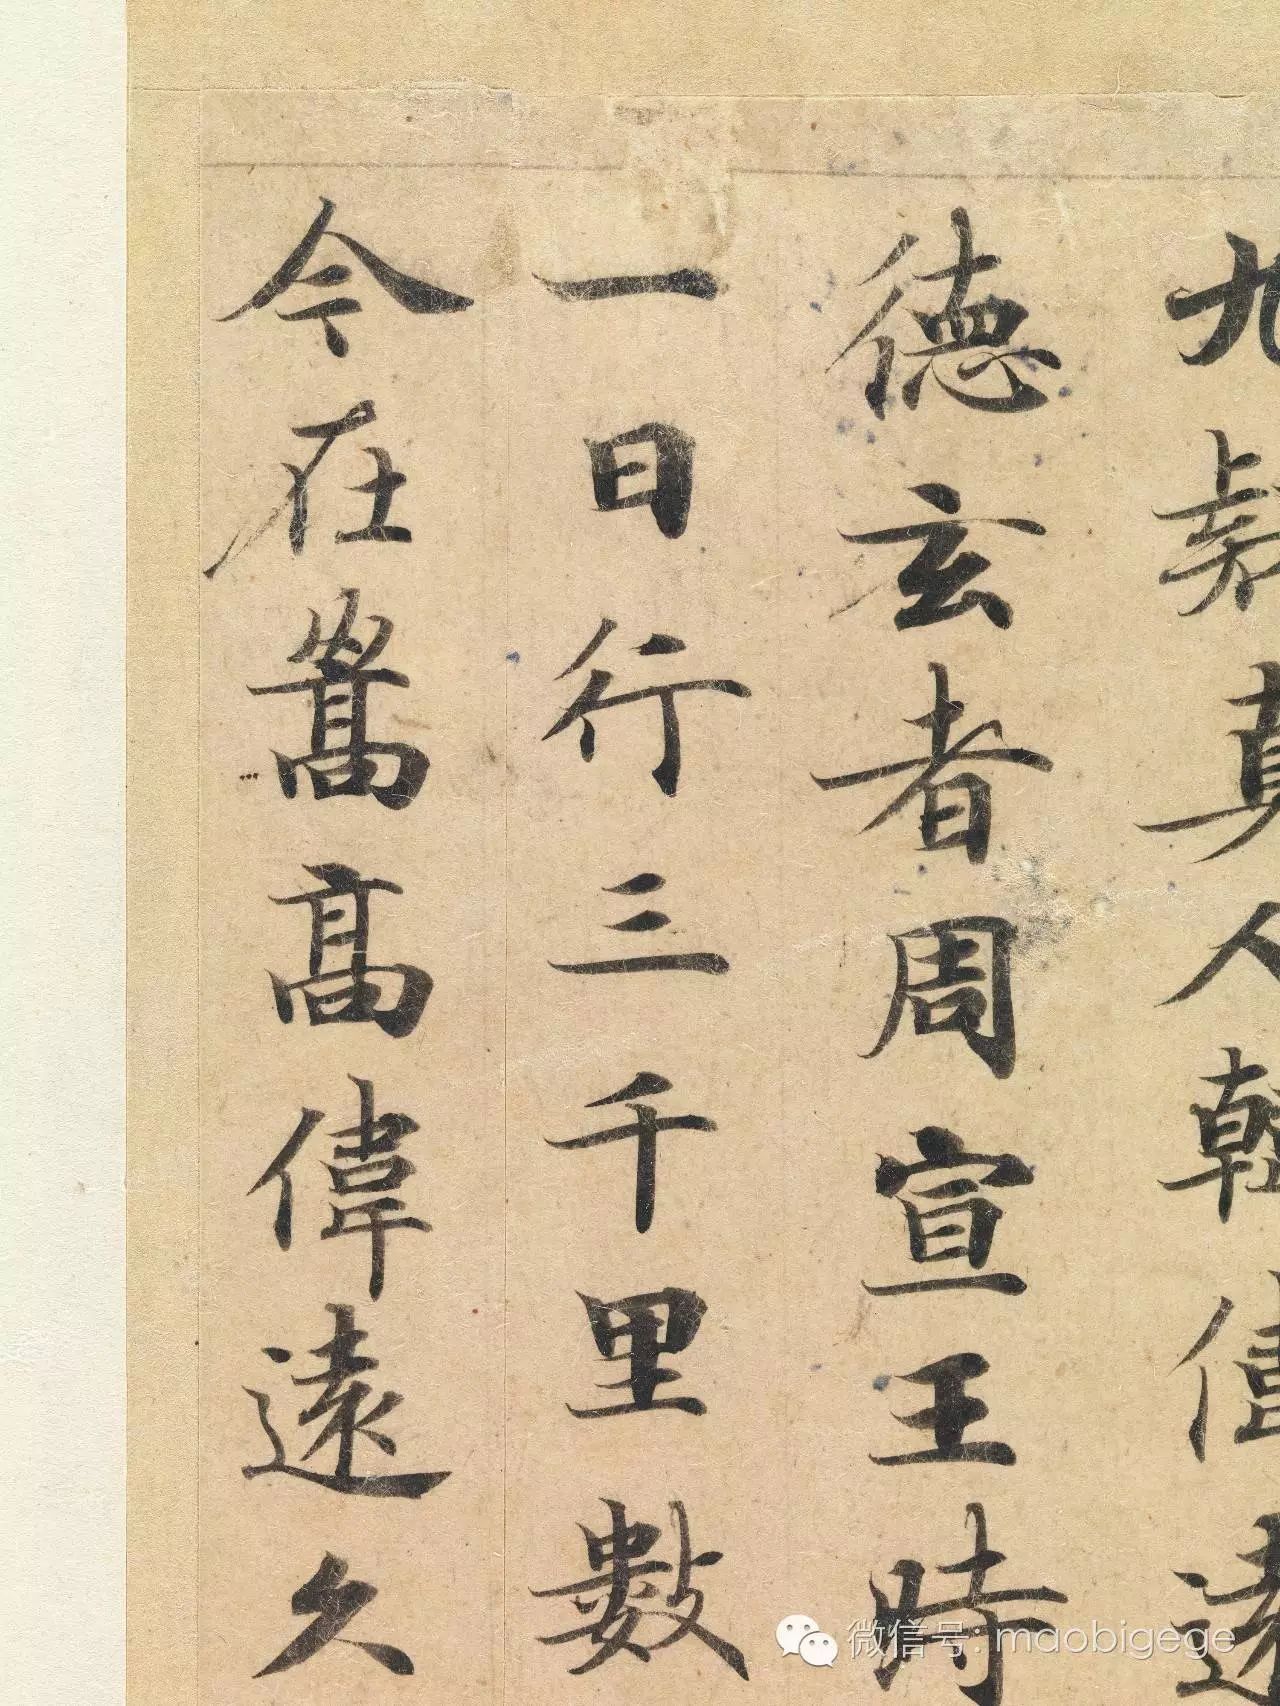 九疑真人韓偉遠
德玄者周宣王時
一日行三千里數
今在嵩高偉遠久
微信号: maobigege